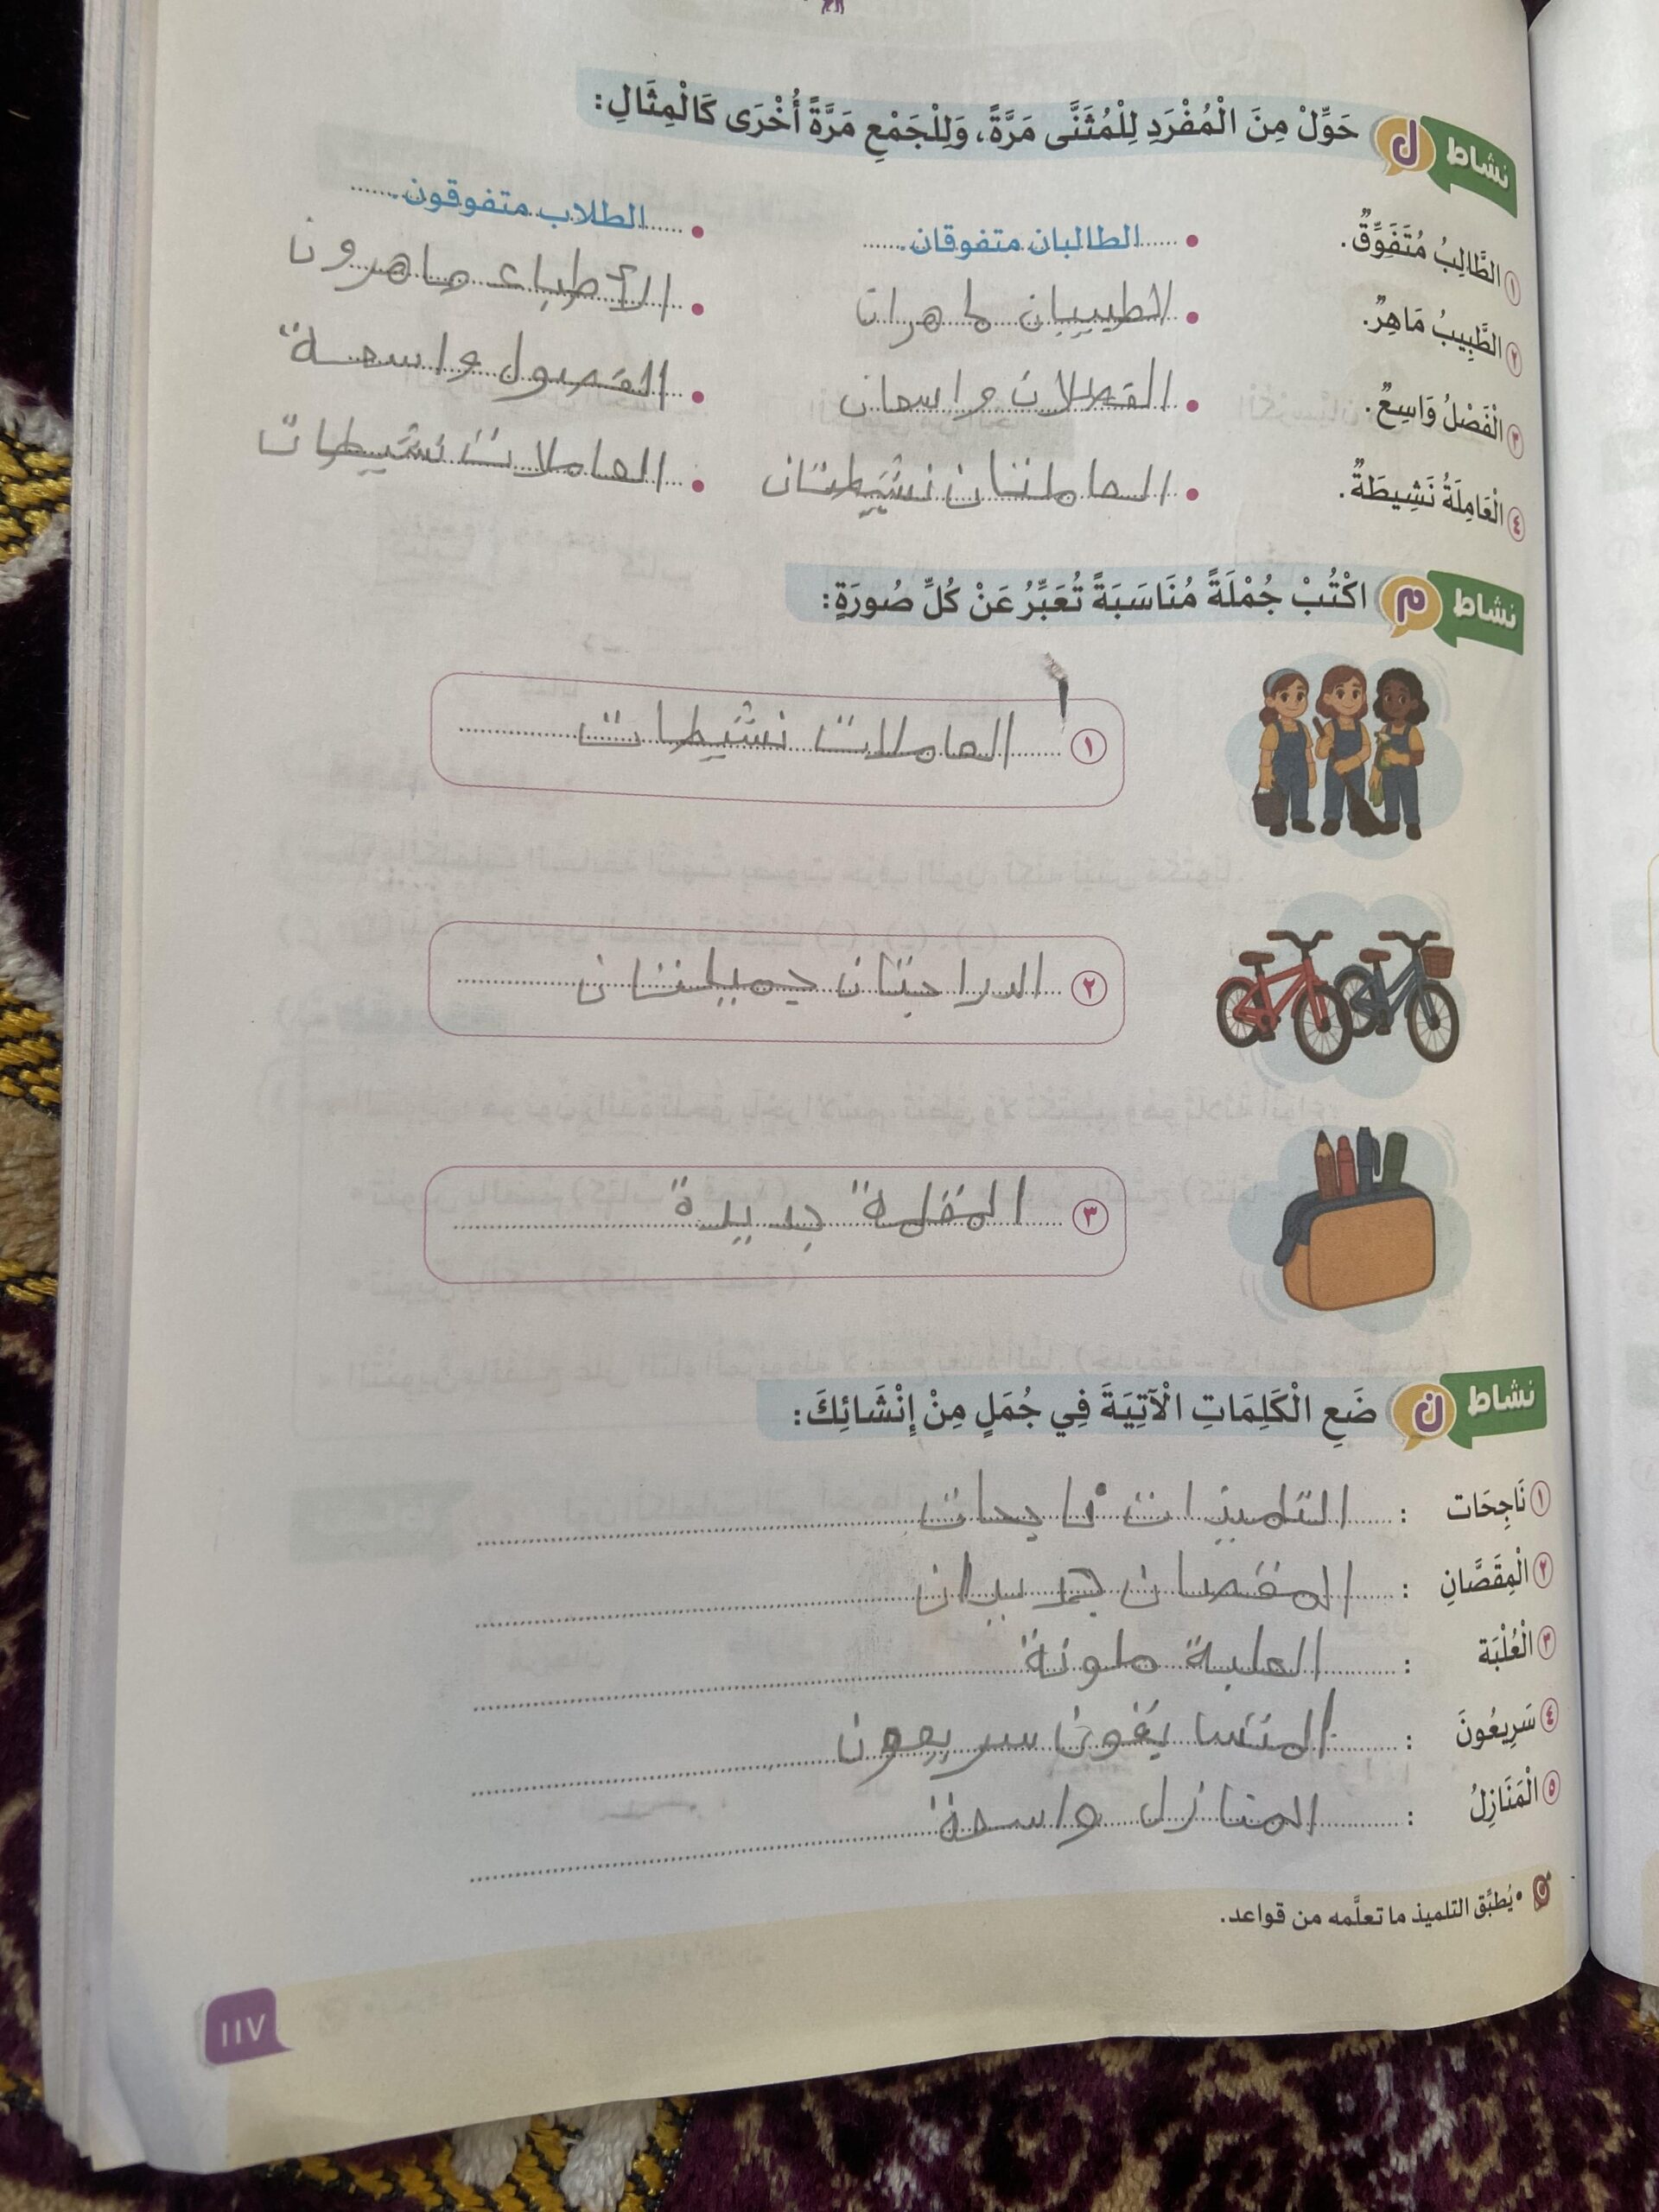 نشاط ل حَوِّلْ مِنَ الْمُفْرَدِ لِلْمُثَنَّى مَرَّةً، وَلِلْجَمْعِ مَرَّةً أُخْرَى كَالْمِثَالِ:
١ الطَّالِبُ مُتَفَوِّقٌ. • الطالبان متفوقان. • الطلاب متفوقون.
٢ الطَّبِيبُ مَاهِرٌ. • الأطباء ماهرون
٣ الْفَصْلُ وَاسِعٌ. • الفصلان واسعان • الفصول واسعة
٤ الْعَامِلَةُ نَشِيطَةٌ. • العاملتان نشيطتان • العاملات نشيطات
نشاط م اكْتُبْ جُمْلَةً مُنَاسَبَةً تُعَبِّرُ عَنْ كُلِّ صُورَةٍ:
١ العاملات نشيطات
٢ الدراجتان جميلتان
٣ المقلمة جديدة
نشاط ن ضَعِ الْكَلِمَاتِ الْآتِيَةَ فِي جُمَلٍ مِنْ إِنْشَائِكَ:
١ نَاجِحَات : التلميذات ناجحات
٢ الْمِقَصَّانِ : المقصان
٣ الْعُلْبَة : العلبة ملونة
٤ سَرِيعُونَ : سريعون
٥ الْمَنَازِلُ : المنازل واسعة
• يُطبِّق التلميذ ما تعلَّمه من قواعد.
١١٧